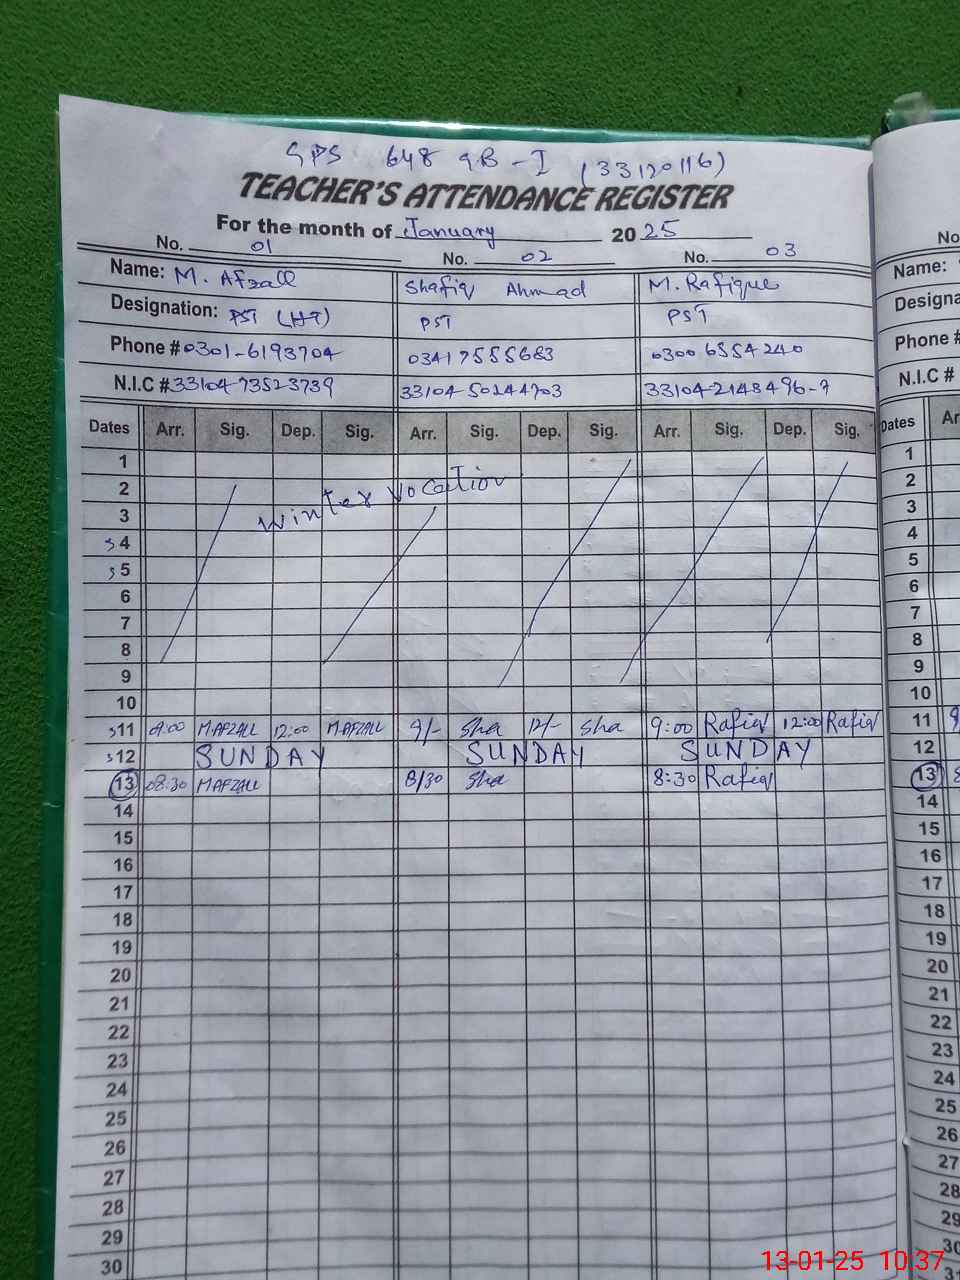 GPS 648 GB-I (33120116)
TEACHER'S ATTENDANCE REGISTER
For the month of January 2025
No. 01 No. 02 No. 03 No
Name: M. Afzall Shafiq Ahmad M. Rafique Name:
Designation: PST (HT) PST PST Designa
Phone # 0301-6193704 03417555683 0300 6554240 Phone #
N.I.C # 33104-73523739 33104-50244703 33104-2148496-7 N.I.C #
Dates Arr. Sig. Dep. Sig. Arr. Sig. Dep. Sig. Arr. Sig. Dep. Sig. Dates Ar
1 1
2 Winter Vocation 2
3 3
S4 4
S5 5
6 6
7 7
8 8
9 9
10 10
S11 09:00 MAFZALL 12:00 MAFZALL 9/- Sha 12/- Sha 9:00 Rafiq 12:00 Rafiq 11 9
S12 SUNDAY SUNDAY SUNDAY 12
13 08:30 MAFZALL 8/30 Sha 8:30 Rafiq 13 8
14 14
15 15
16 16
17 17
18 18
19 19
20 20
21 21
22 22
23 23
24 24
25 25
26 26
27 27
28 28
29 29
30 30
13-01-25 10:37